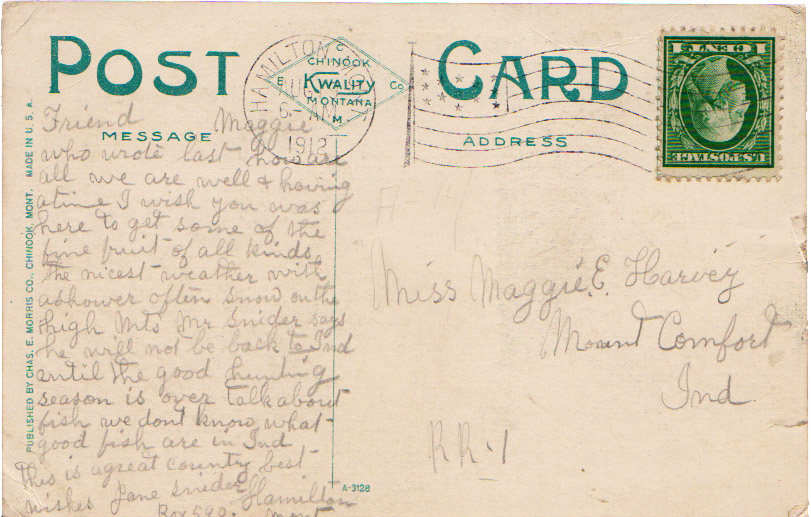 POST CARD
C
CHINOOK
E KWALITY Co
MONTANA
M.
HAMILTON
6- AM
1912
1 CENT 1
U.S. POSTAGE
MESSAGE
ADDRESS
Friend Maggie
who wrote last how are
all we are well & having
a time I wish you was
here to get some of the
fine fruit of all kinds
the nicest weather with
a shower often snow on the
high Mts Mr Snider says
he will not be back to Ind
until the good hunting
season is over talk about
fish we dont know what
good fish are in Ind
This is a great country best
wishes Jane Snider Hamilton
Box 590. Mont
Miss Maggie E. Harvey
Mount Comfort
Ind
RR-1
A-3128
PUBLISHED BY CHAS. E. MORRIS CO., CHINOOK, MONT. MADE IN U. S. A.